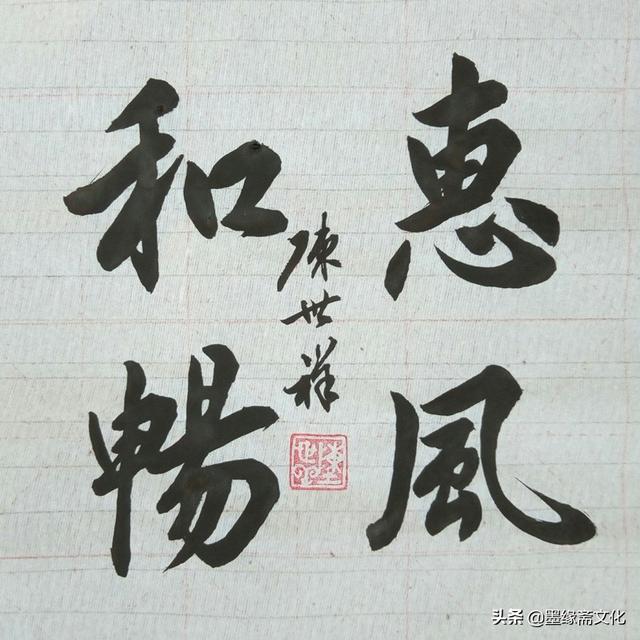 惠風
和暢
陳世祥
头条 @墨缘斋文化